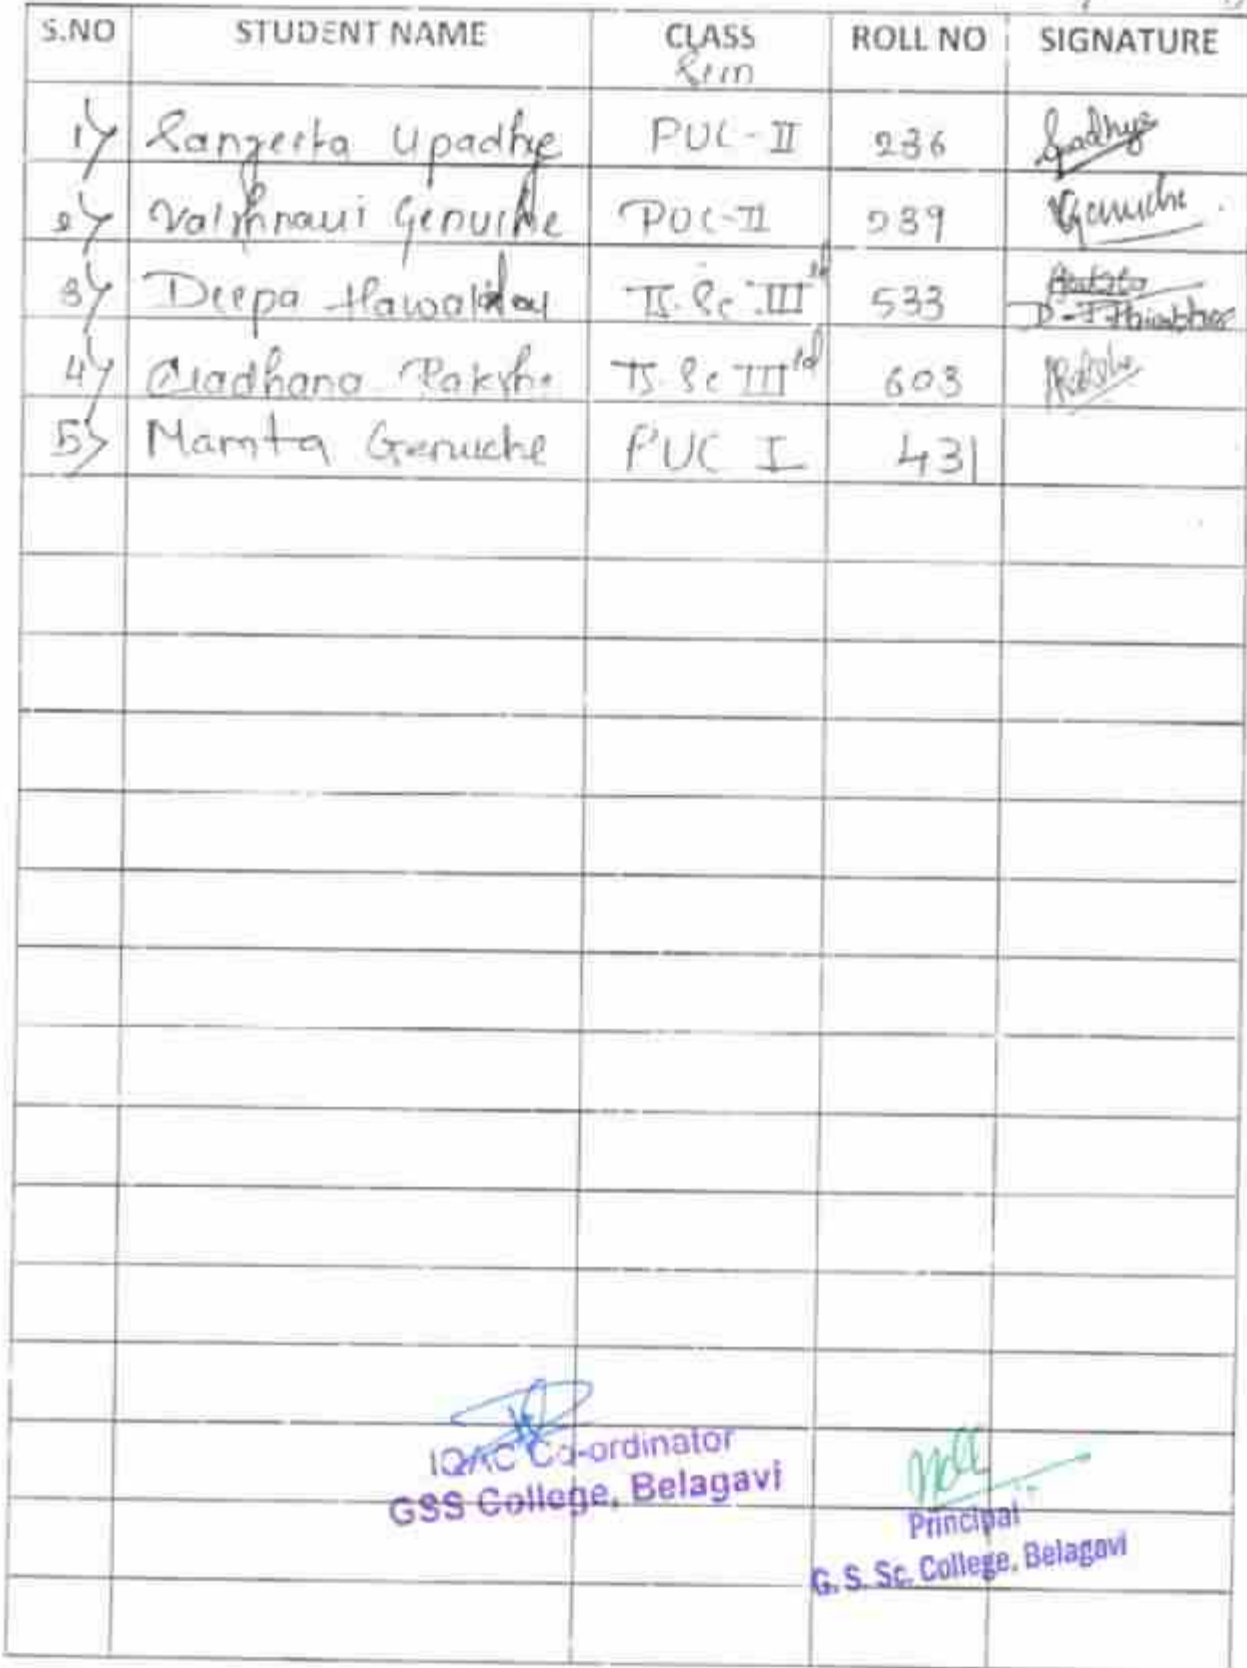 S.NO STUDENT NAME CLASS ROLL NO SIGNATURE
Sem
1) Sangeeta Upadhye PUC-II 236
2) Vaishnavi Genuche PUC-II 239 Genuche
3) Deepa Hawaldar B.Sc III 533
4) Aradhana Pakshe B.Sc III 603
5) Mamta Genuche PUC I 431
IQAC Co-ordinator
GSS College, Belagavi
Principal
G. S. Sc. College, Belagavi